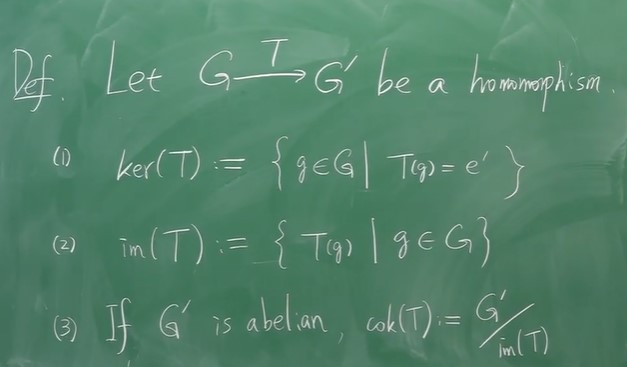 Def. Let G —T→ G' be a homomorphism.
(1) ker(T) := { g ∈ G | T(g) = e' }
(2) im(T) := { T(g) | g ∈ G }
(3) If G' is abelian, cok(T) := G'/im(T)